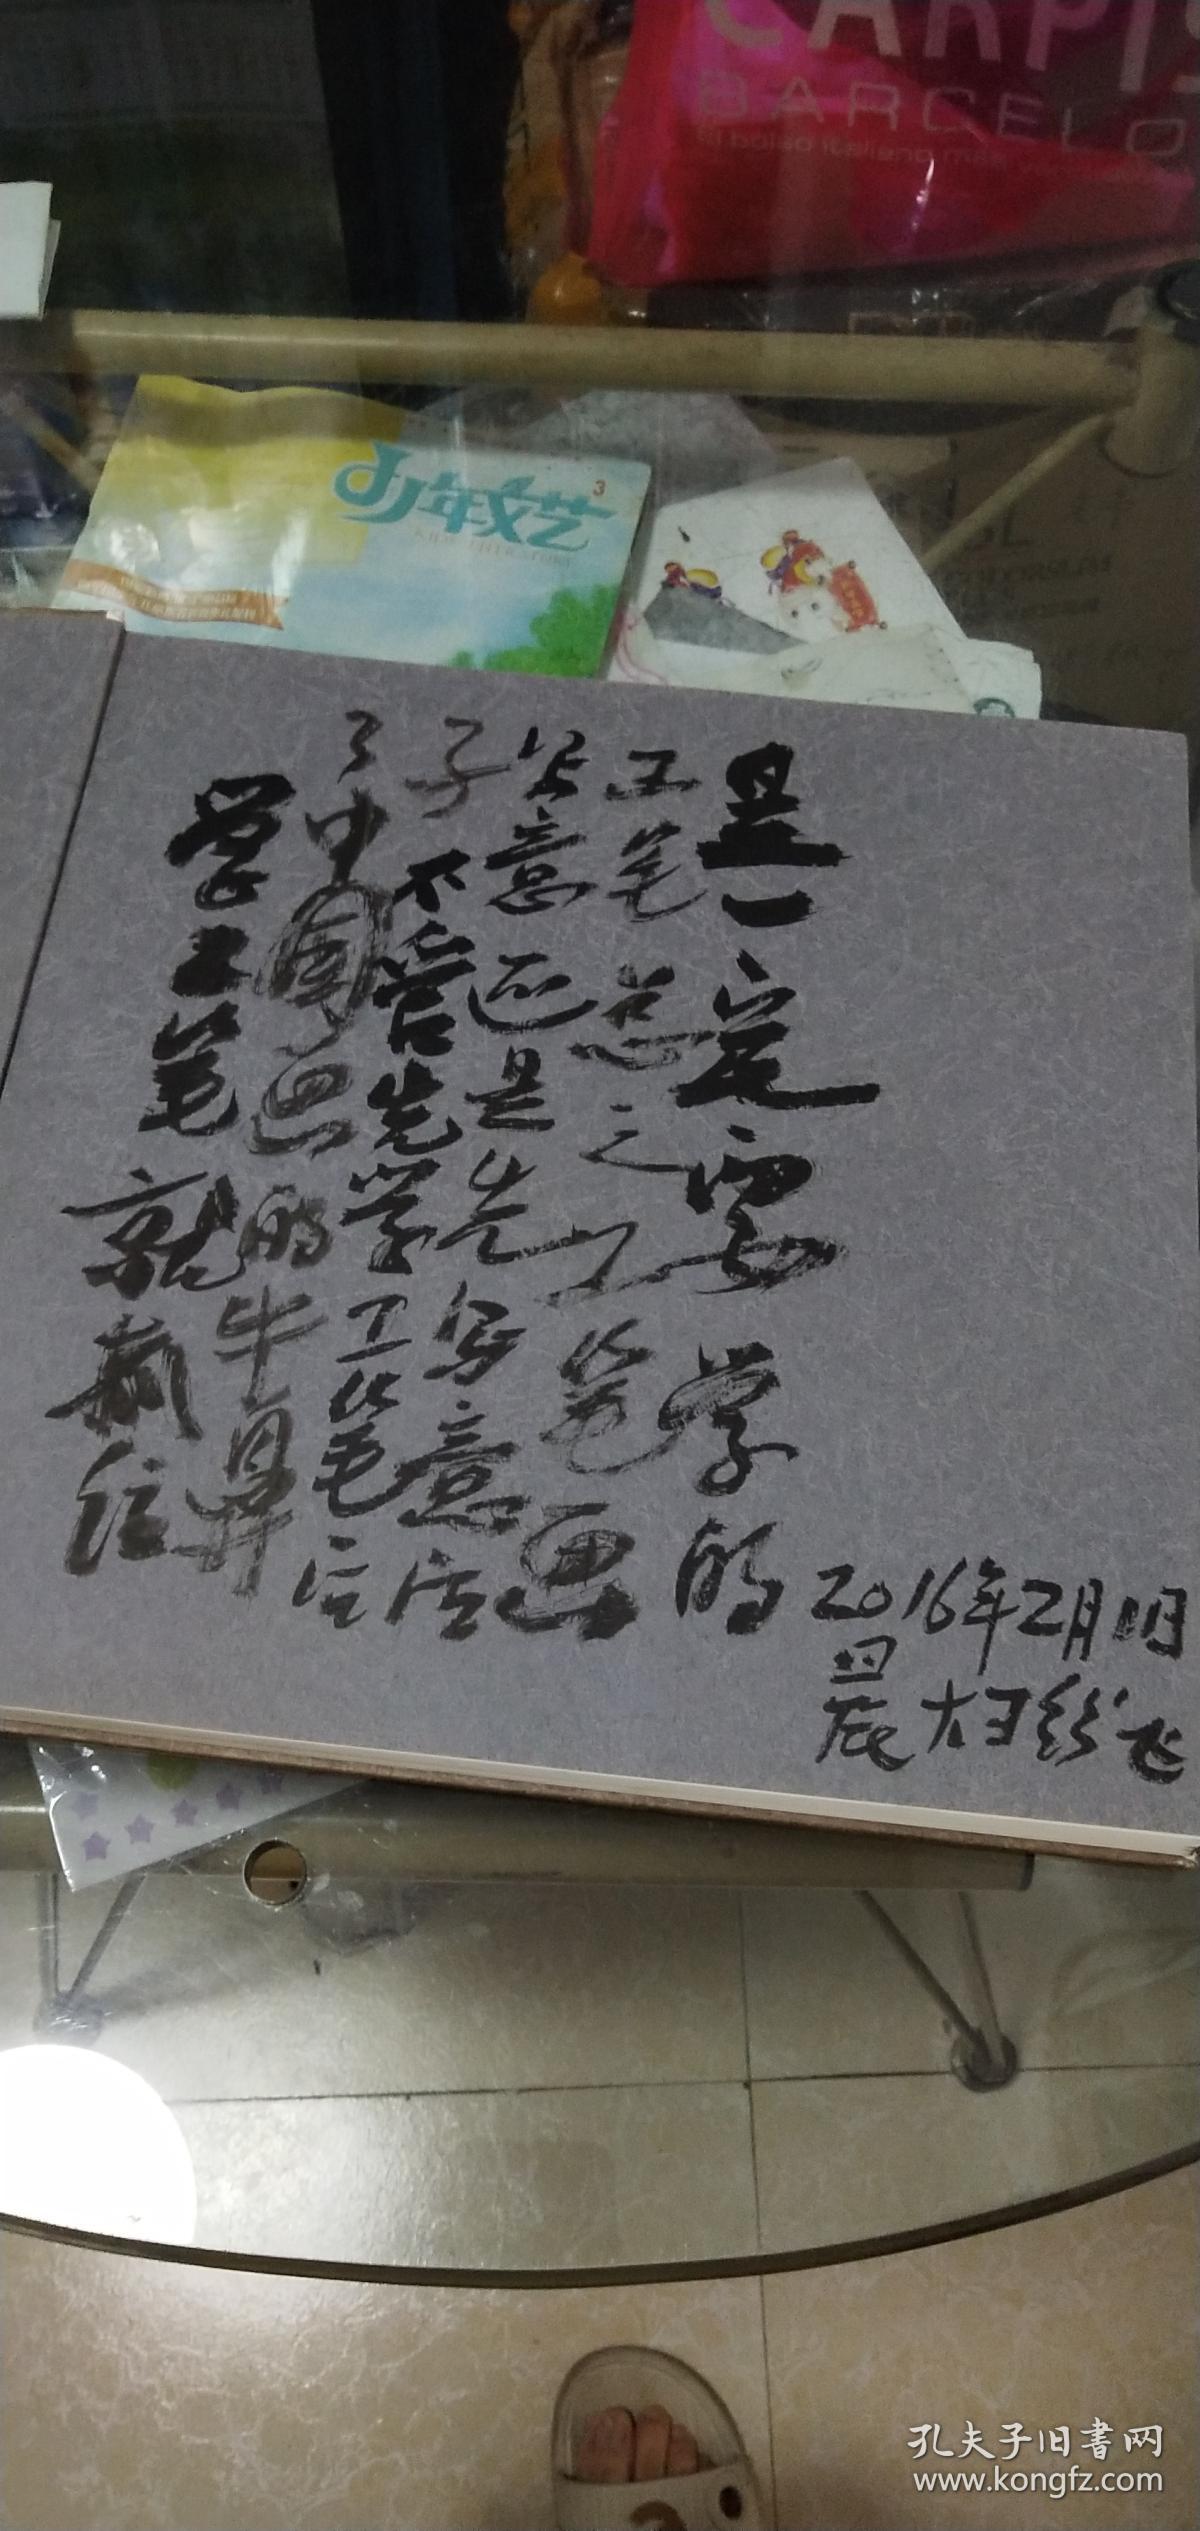 CARPIS
BARCELO
少年文艺
3
学工笔就抓住
了中国画的牛鼻
子不管先学工笔后
写意还是先写意后
工笔总之工笔画
是一定要学的
2016年2月11日
晨
孔夫子旧书网
www.kongfz.com